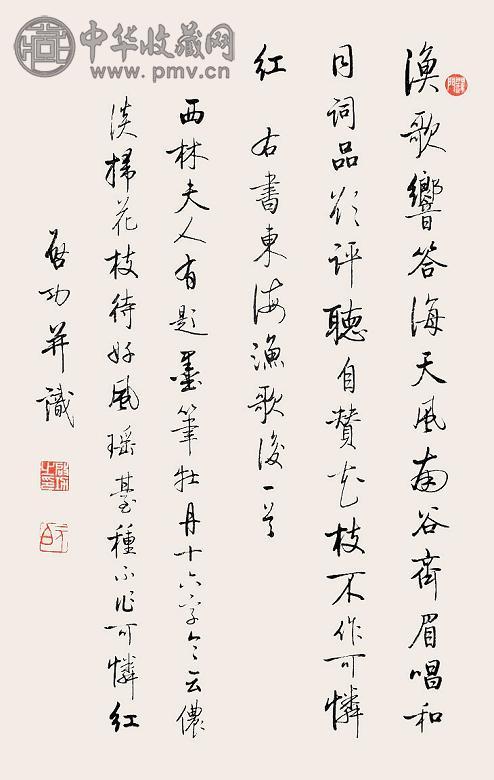 中华收藏网
www.pmv.cn
漁歌響答海天風南谷齊眉唱和
同詞品欲評聽自贊花枝不作可憐
紅 右書東海漁歌後一首
西林夫人有題墨筆牡丹十六字令云儂
淡掃花枝待好風瑶臺種不作可憐紅
啟功并識
啟功之印
元白